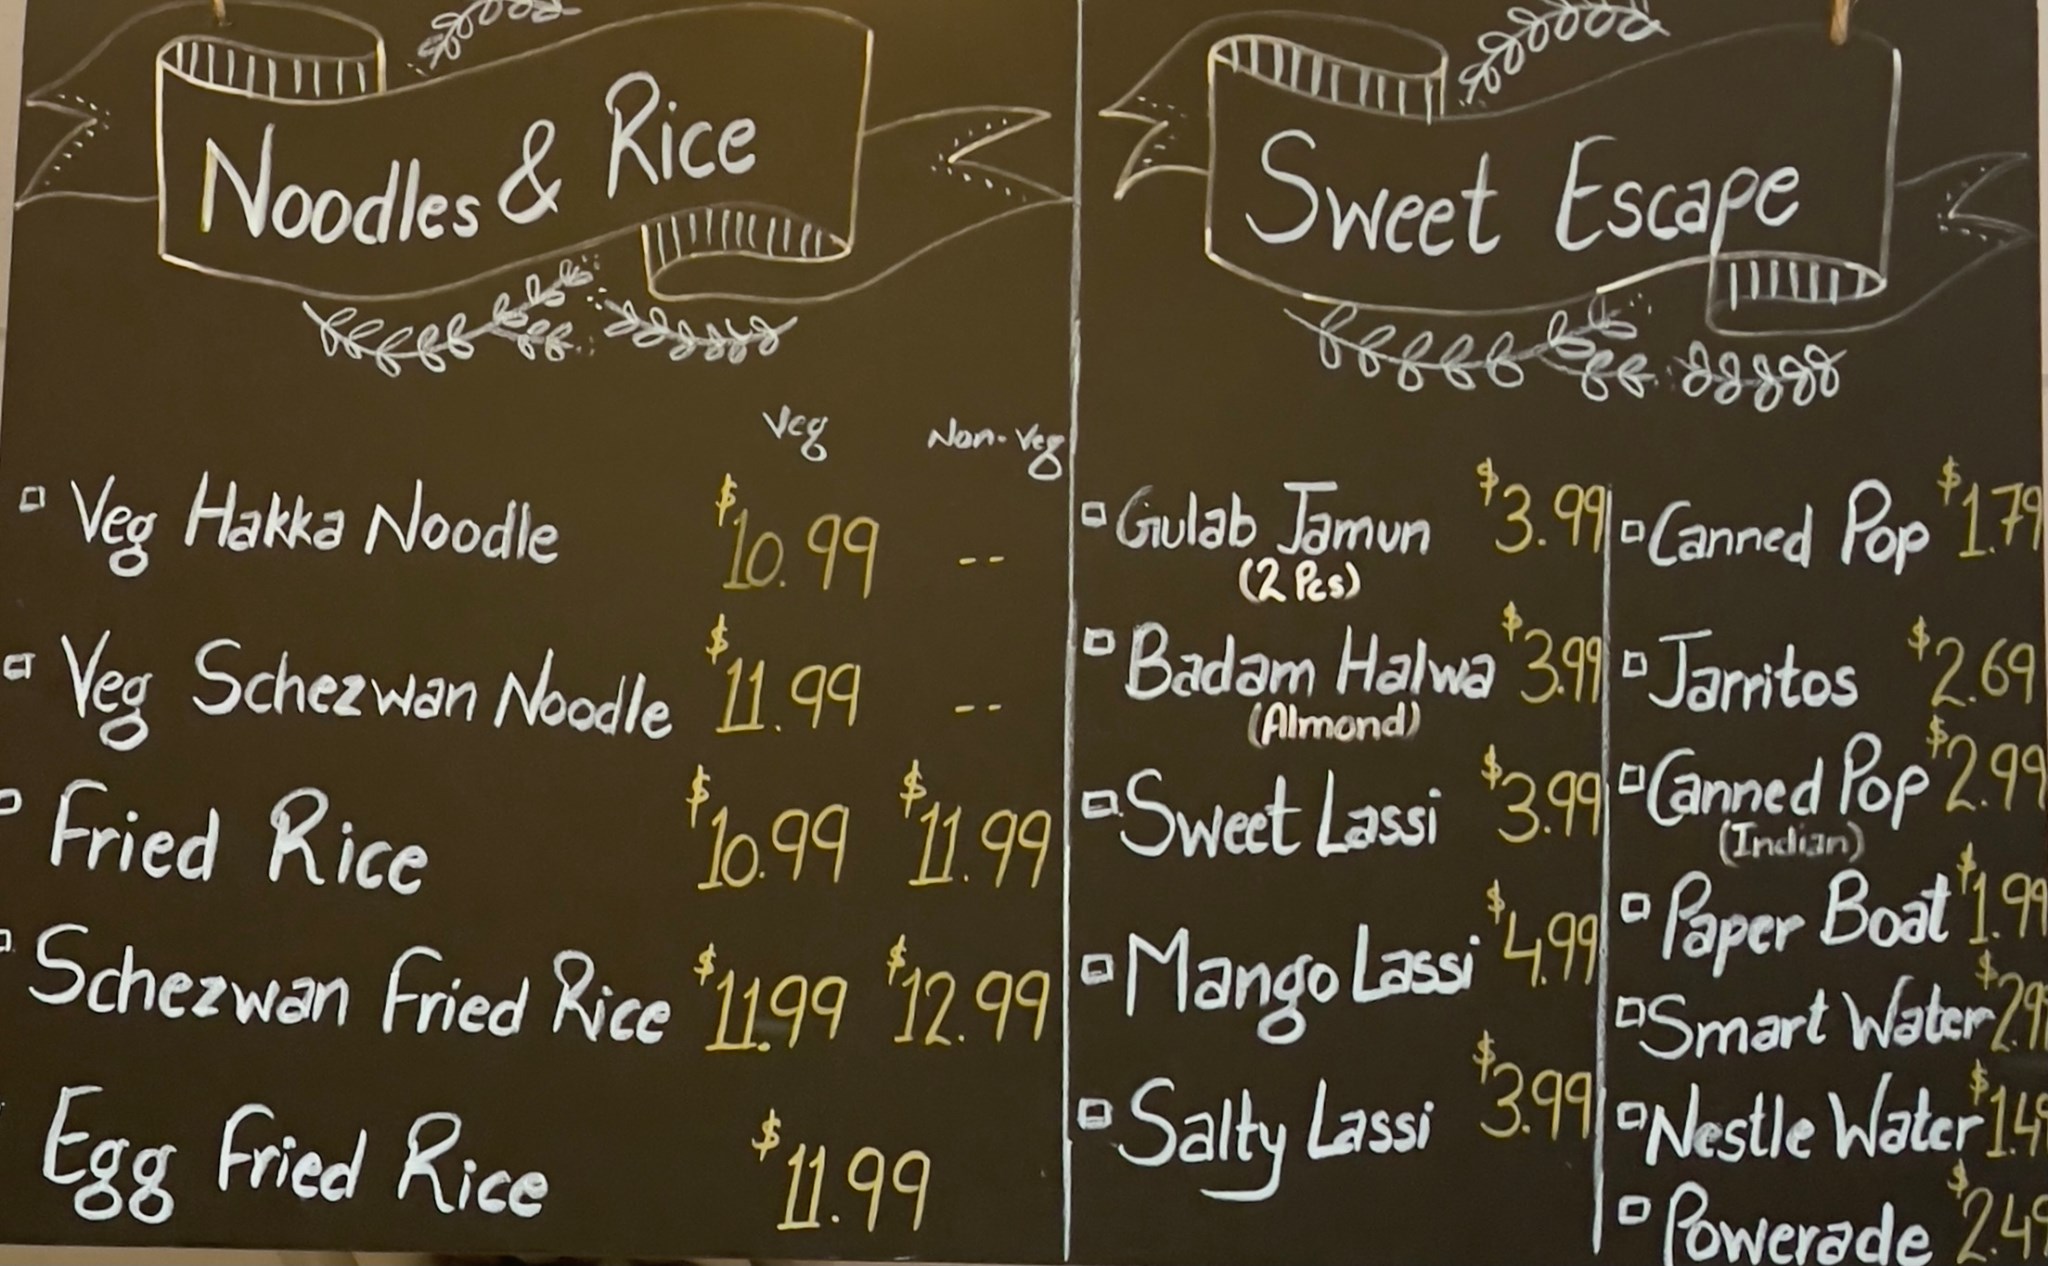 Noodles & Rice
Veg Non-Veg
Veg Hakka Noodle $10.99 --
Veg Schezwan Noodle $11.99 --
Fried Rice $10.99 $11.99
Schezwan Fried Rice $11.99 $12.99
Egg Fried Rice $11.99
Sweet Escape
Gulab Jamun $3.99
(2 Pcs)
Badam Halwa $3.99
(Almond)
Sweet Lassi $3.99
Mango Lassi $4.99
Salty Lassi $3.99
Canned Pop $1.79
Jarritos $2.69
Canned Pop $2.99
(Indian)
Paper Boat $1.99
Smart Water
Nestle Water
Powerade